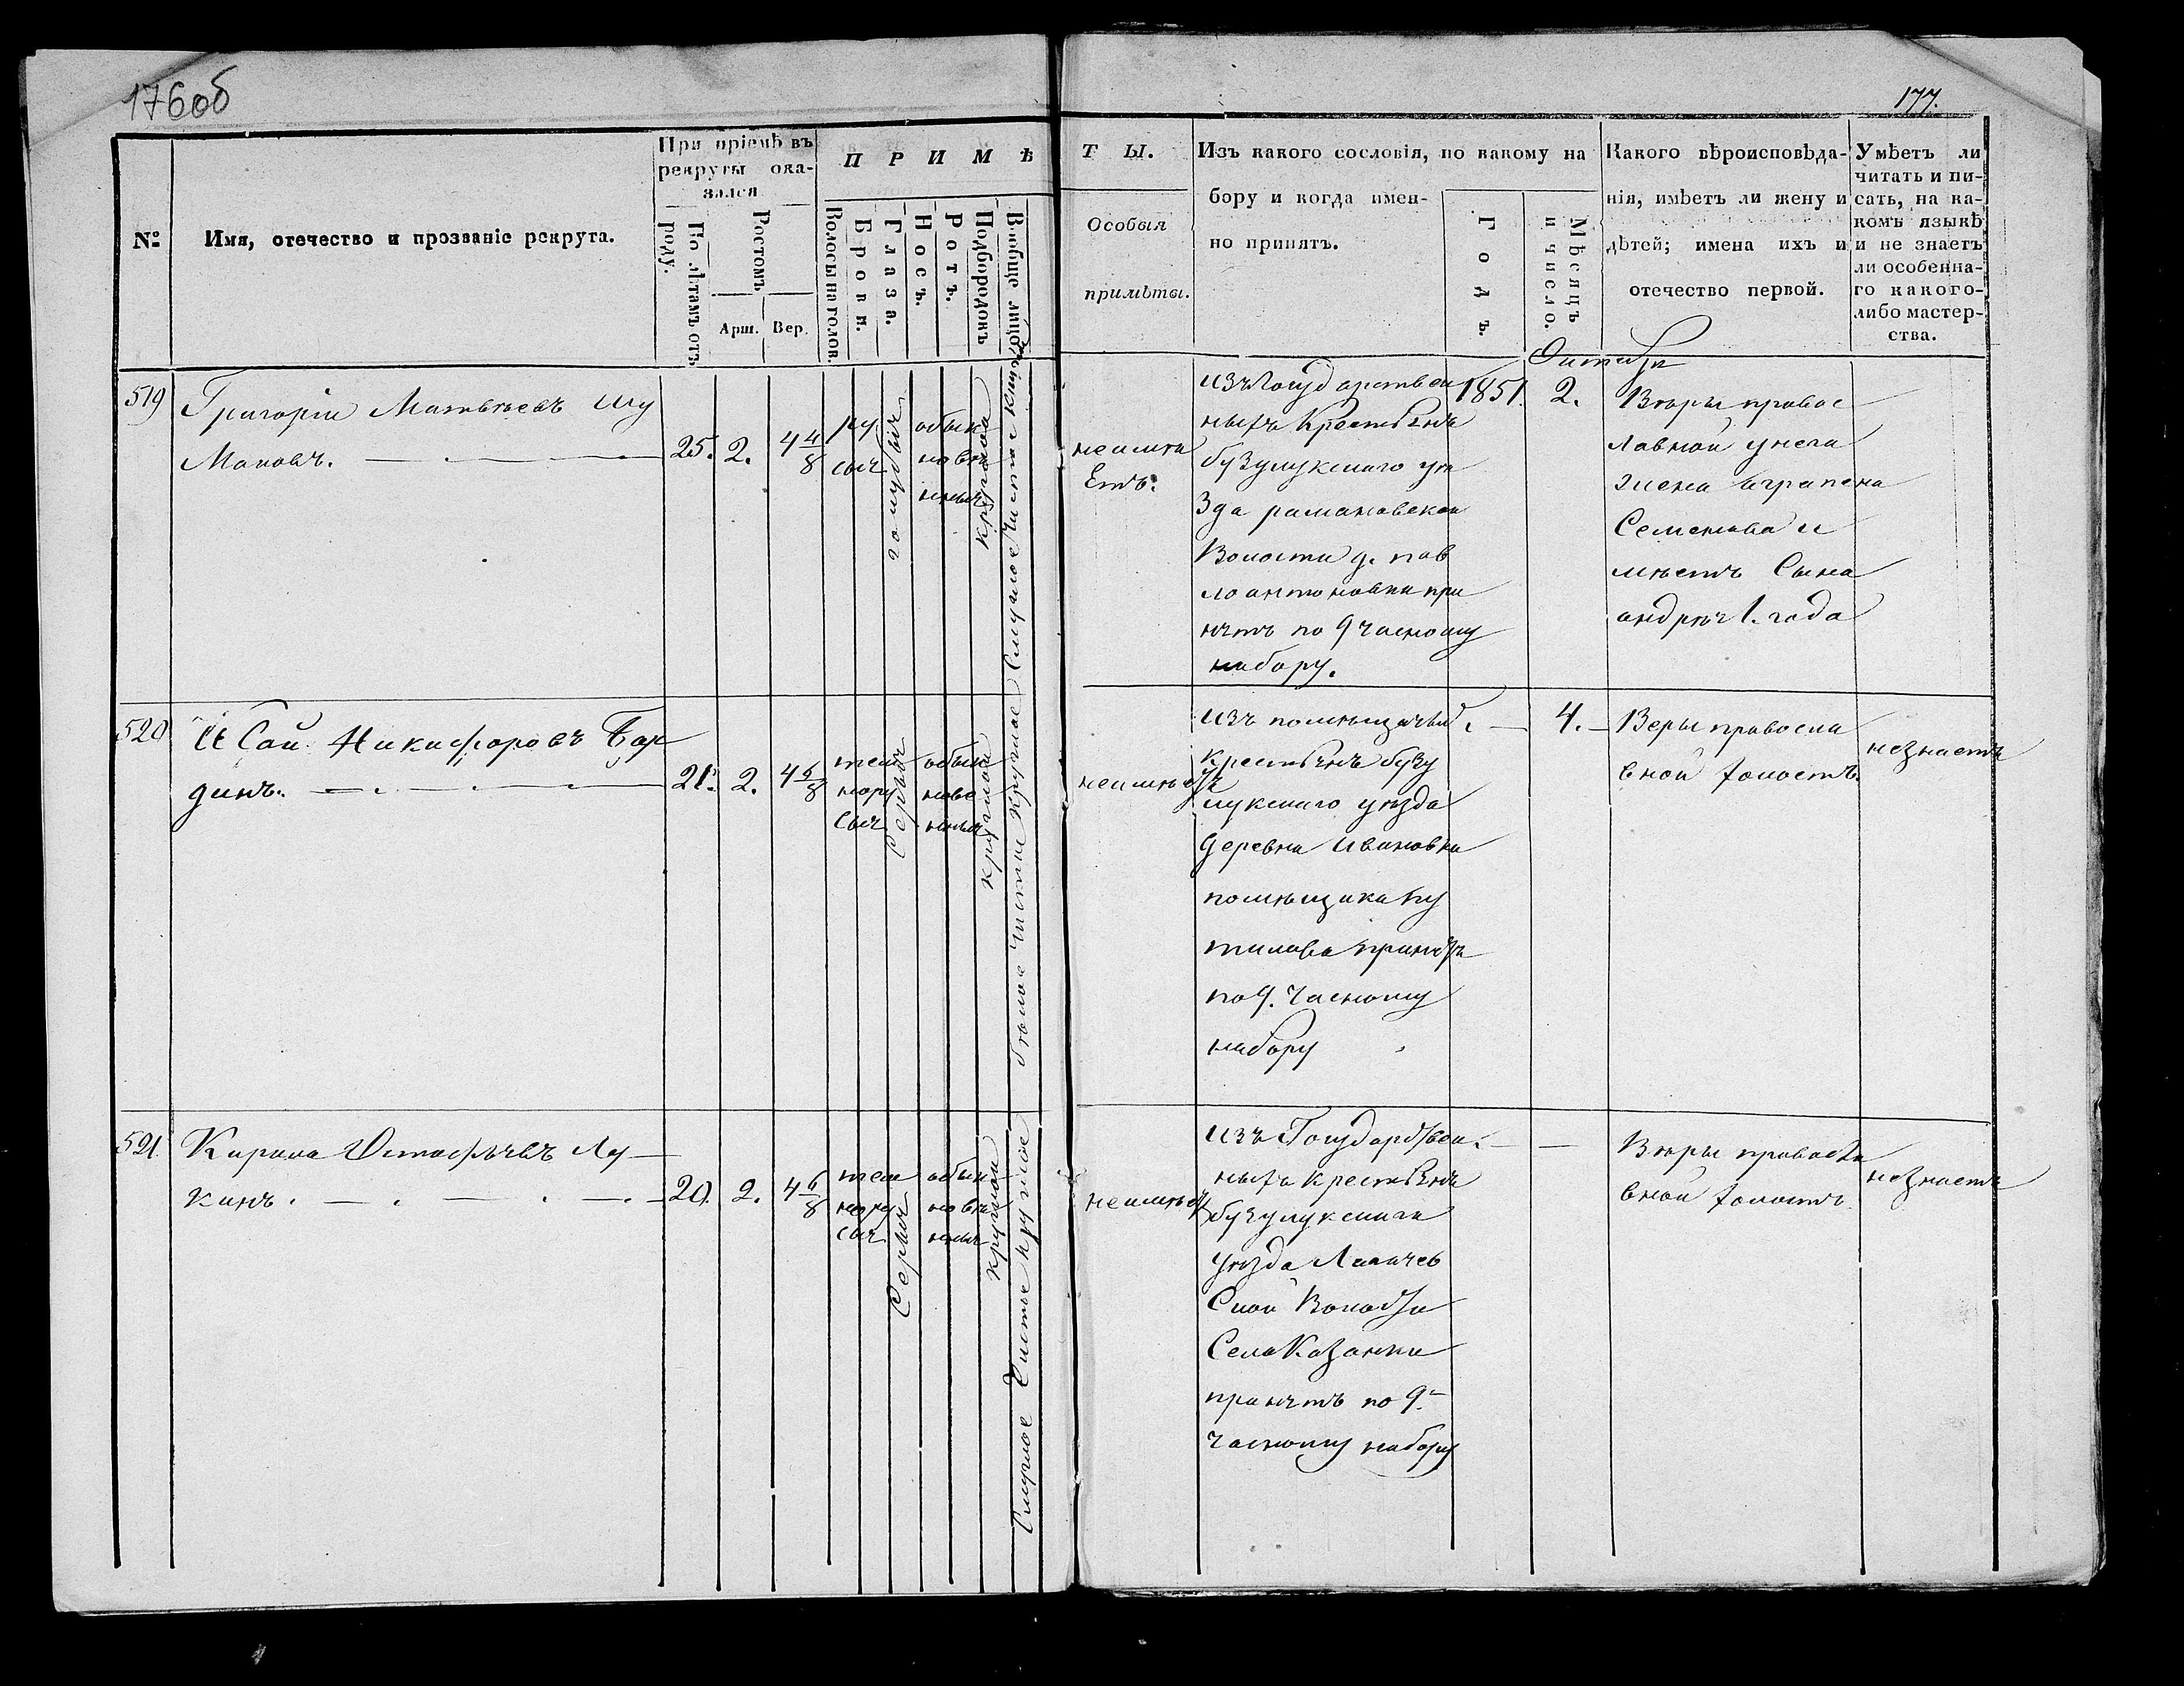 176об
177.
При пріемѣ въ рекруты ока-
зался
П Р И М Ѣ
Т Ы.
№
Имя, отечество и прозваніе рекрута.
По лѣтамъ отъ роду.
Ростомъ.
Арш.
Вер.
Волосы на голов.
Брови.
Глаза.
Носъ.
Ротъ.
Подбородокъ
Вообще лицо.
Особыя
примѣты.
Изъ какого сословія, по какому на
бору и когда имен-
но принятъ.
Годъ.
Мѣсяцъ и число.
Какого вѣроисповѣда-
нія, имѣетъ ли жену и
дѣтей; имена ихъ и
отечество первой.
Умѣетъ ли
читать и пи-
сать, на ка-
комъ языкѣ
и не знаетъ
ли особенна-
го какого-
либо мастер-
ства.
519
Григорій Матвѣевъ Шу
маковъ.
25. 2. 4 4/8
ру
сыя
голубыя
обык
новѣ
нныя
круглой
Смуглое чистое
неимѣ
Етъ.
изъ Государствен
ныхъ Крестьянъ
бузулукскаго уѣ
зда рамановской
Волости д. пав
лоантоновки при
нятъ по 9 часному
набору.
1851.
Октября
2.
Вѣры правос
лавной унего
жена Аграпена
Семенова и
мѣетъ Сына
андрѣя 1. года
520
ИСай Никифоровъ Бар
динъ.
21. 2. 4 6/8
тем
нору
сыя
Серыя
обык
нове
нныя
круглой
бѣлое чистое круглое
неимѣетъ
изъ помѣщичьих
Крестьянъ бузу
лукскаго уѣзда
Деревни Ивановки
помѣщика Пу
тилова принятъ
по 9. Часному
набору
4.
Веры правосла
вной Холостъ
незнаетъ
521.
Кирила Остафьевъ Лу
кинъ.
20. 2. 4 6/8
тем
нору
сыя
Серыя
обык
новѣ
нныя
круглой
Смуглое Чистое круглое
неимѣетъ
изъ Государствен
ныхъ Крестьянъ
бузулукскаго
уѣзда
Ской Волости
Села Казанки
принятъ по 9-
Часному набору
Вѣры правосла
вной Холостъ
незнаетъ